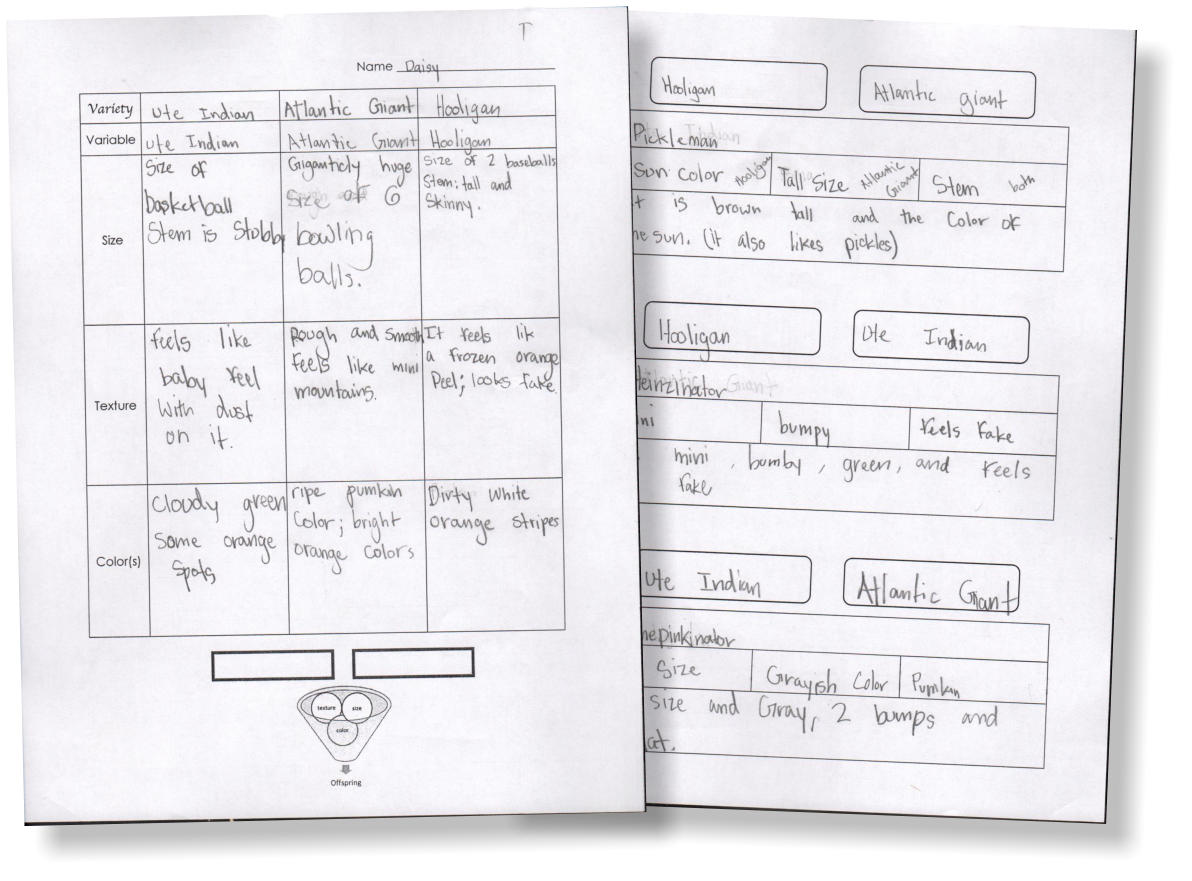 T
Name Daisy
Variety Ute Indian Atlantic Giant Hooligan
Variable Ute Indian Atlantic Giant Hooligan
Size
Size of
basketball
Stem is Stobby
Giganticly huge
Size of 6
bowling
balls.
Size of 2 baseballs
Stem: tall and
Skinny.
Texture
feels like
baby feel
With dust
on it.
Rough and smooth
Feels like mini
mountains.
It feels lik
a frozen orange
Peel; looks fake.
Color(s)
Cloudy green
Some orange
Spots
ripe pumkin
Color; bright
orange colors
Dirty white
orange stripes
texture size
color
Offspring
Hooligan Atlantic giant
Pickleman Indian
Sun color Hooligan Tall Size Atlantic Giant Stem both
t is brown tall and the Color of
he sun. (it also likes pickles)
Hooligan Ute Indian
Heinzinator Atlantic Giant
ni bumpy Feels Fake
mini, bumby, green, and Feels
Fake
Ute Indian Atlantic Giant
hepinkinator
Size Grayish Color Pumkin
size and Gray, 2 bumps and
at.